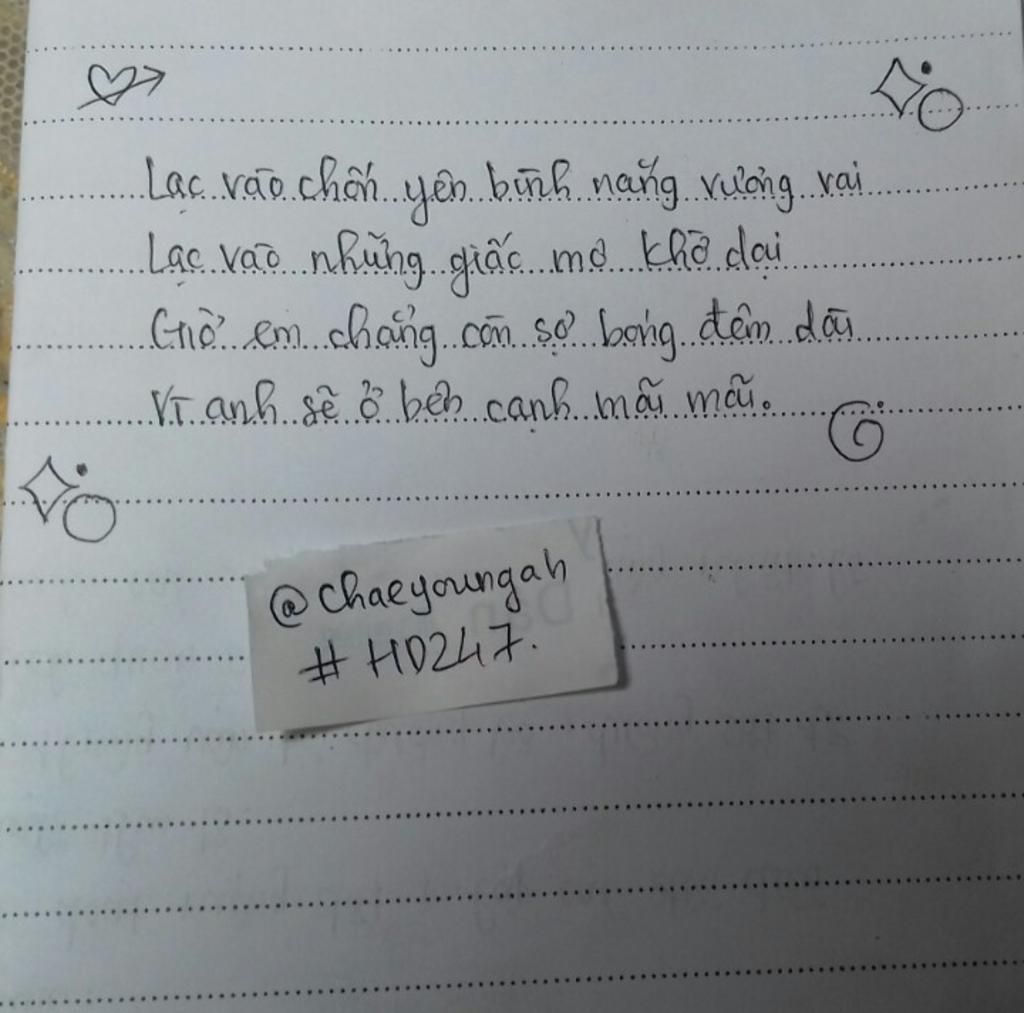 Lạc vào chốn yên bình nắng vương vai
Lạc vào những giấc mơ khờ dại
Giờ em chẳng còn sợ bóng đêm dài
Vì anh sẽ ở bên cạnh mãi mãi.
@chaeyoungah
#HD247.